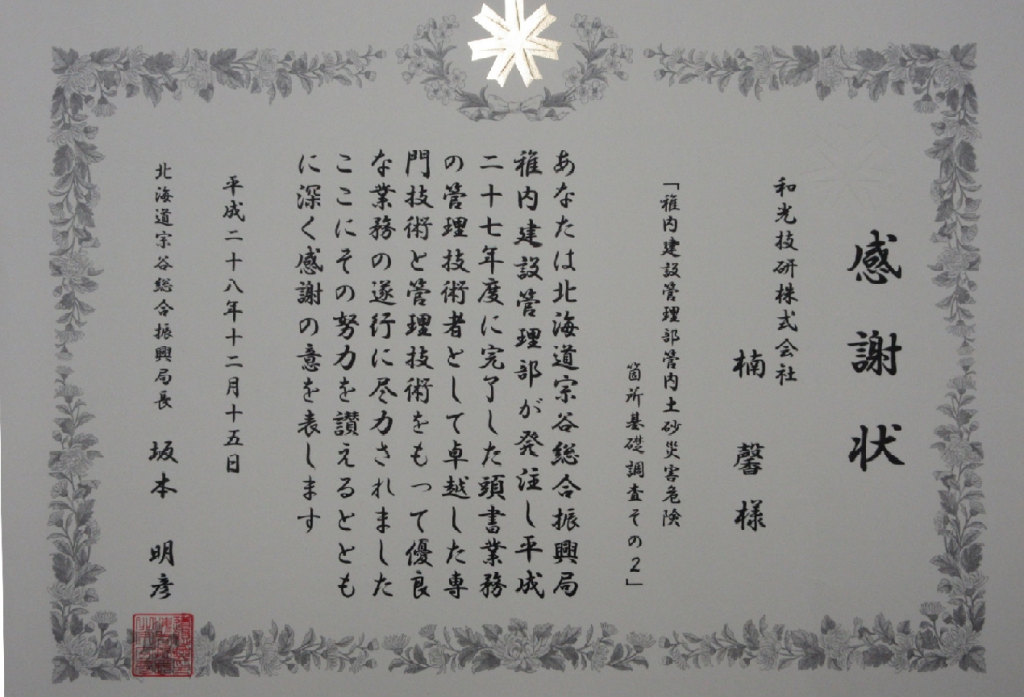 感謝状
和光技研株式会社
楠 馨 様
「稚内建設管理部管内土砂災害危険
箇所基礎調査その2」
あなたは北海道宗谷総合振興局
稚内建設管理部が発注し平成
二十七年度に完了した頭書業務
の管理技術者として卓越した専
門技術と管理技術をもって優良
な業務の遂行に尽力されました
ここにその努力を讃えるととも
に深く感謝の意を表します
平成二十八年十二月十五日
北海道宗谷総合振興局長 坂本 明彦